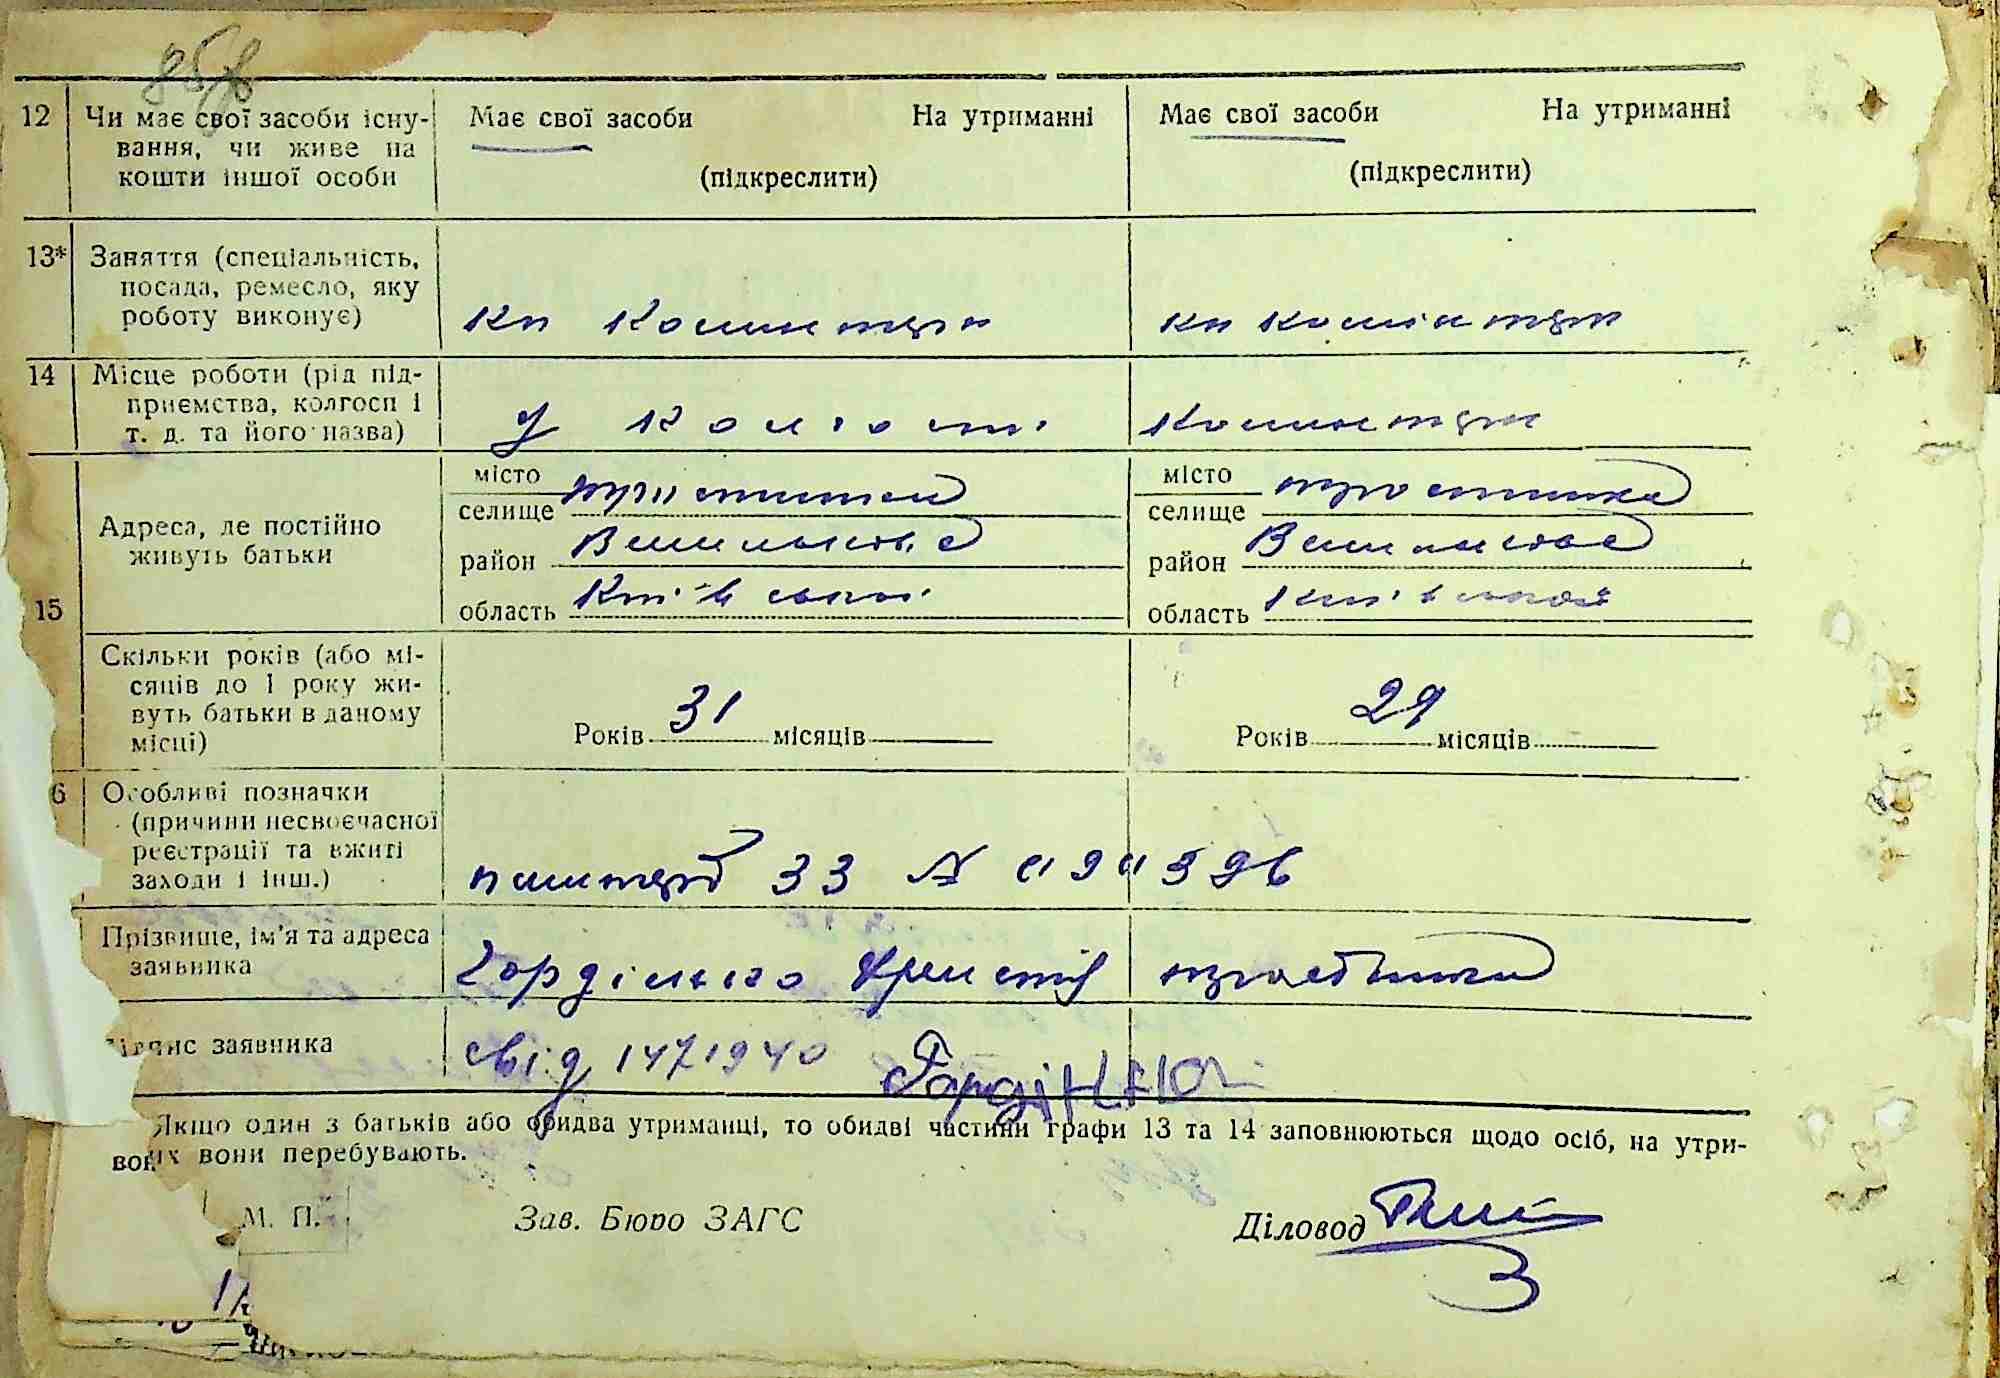 12 Чи має свої засоби існу-
вання, чи живе на
кошти іншої особи
Має свої засоби На утриманні
(підкреслити)
Має свої засоби На утриманні
(підкреслити)
13* Заняття (спеціальність,
посада, ремесло, яку
роботу виконує)
кп
кп
14 Місце роботи (рід під-
приємства, колгосп і
т. д. та його назва)
у колгоспі
15
Адреса, де постійно
живуть батьки
місто
селище
район
область Київської
місто
селище
район
область Київської
Скільки років (або мі-
сяців до 1 року жи-
вуть батьки в даному
місці)
Років 31 місяців
Років 29 місяців
6 Особливі позначки
(причини несвоєчасної
реєстрації та вжиті
заходи і інш.)
паспорт 33 №
Прізвище, ім'я та адреса
заявника
Гордієнко
підпис заявника
свід 1471940
Якщо один з батьків або обидва утриманці, то обидві частини графи 13 та 14 заповнюються щодо осіб, на утри-
их вони перебувають.
М. П.
Зав. Бюро ЗАГС
Діловод